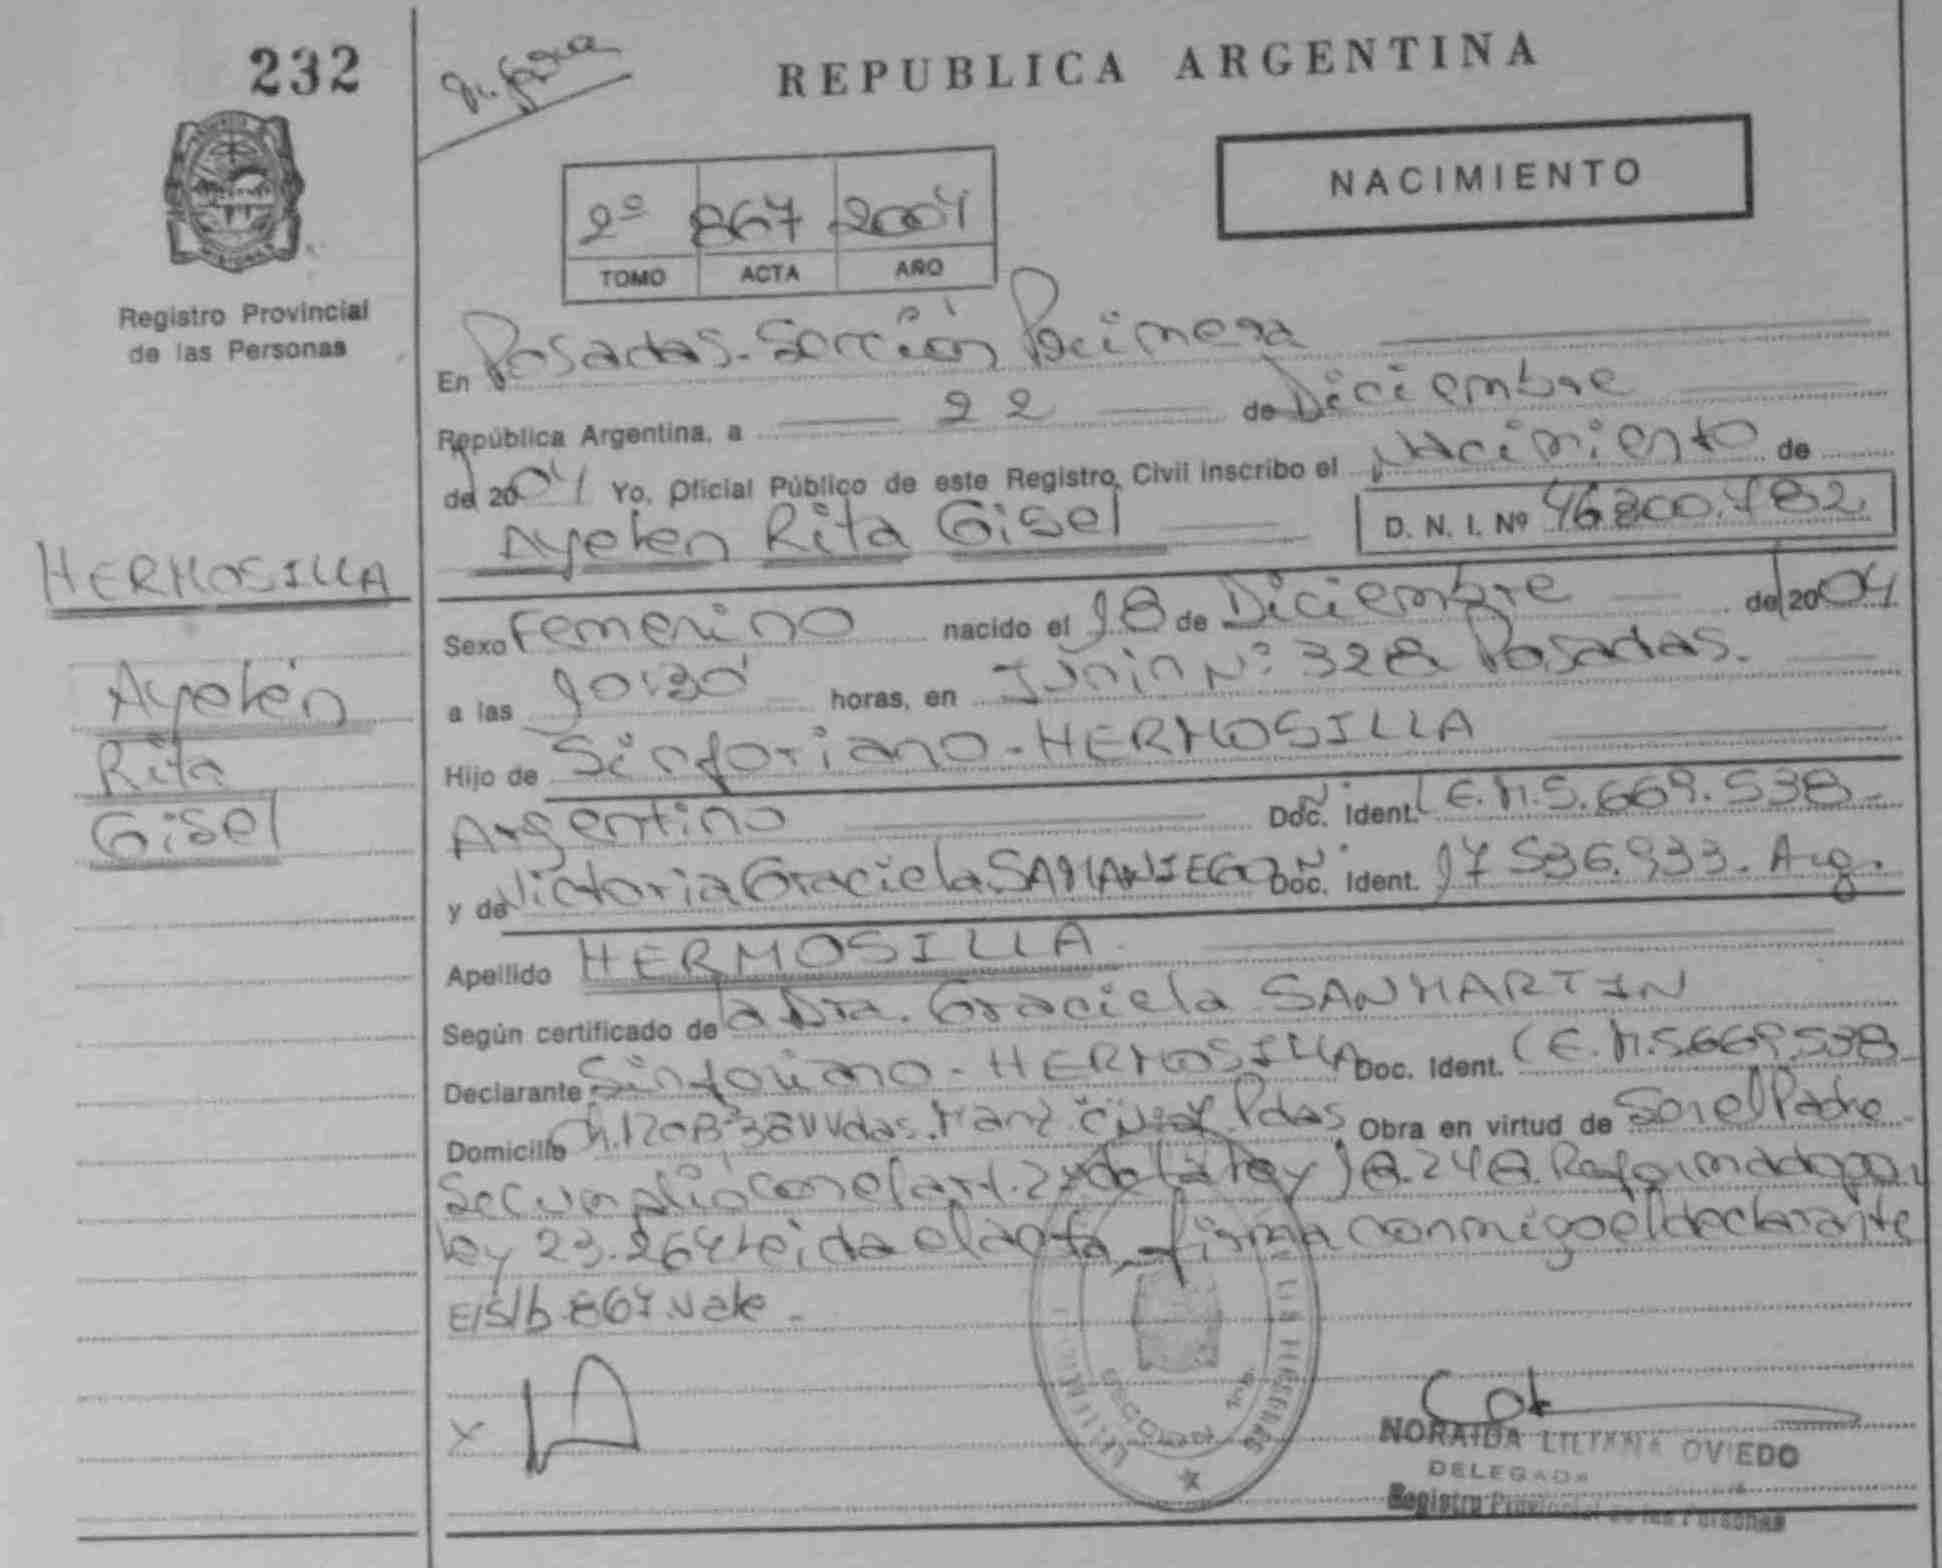 232
REPUBLICA ARGENTINA
NACIMIENTO
2º 867 2004
TOMO ACTA AÑO
Registro Provincial
de las Personas
En Posadas. Sección Primera
República Argentina, a 22 de Diciembre
de 2004 Yo, Oficial Público de este Registro Civil inscribo el Nacimiento de
Ayelen Rita Gisel D. N. I. Nº 46.200.782
HERMOSILLA
Ayelén
Rita
Gisel
Sexo Femenino nacido el 18 de Diciembre de 2004
a las 10:30 horas, en Junin Nº 328 Posadas.
Hijo de Sinforiano - HERMOSILLA
Argentino Doc. Ident. L.E. M. 5.669.538-
y de Victoria Graciela SAMANIEGO Doc. Ident. 17 536.933. Arg.
Apellido HERMOSILLA
Según certificado de la Dra. Graciela SANMARTIN
Declarante Sinforiano - HERMOSILLA Doc. Ident. L.E. M. 5.669.538-
Domicilio Ch. 120 Pdas Obra en virtud de Ser el Padre
Se cumplió con el art. de la Ley 18.248. Reformado por
Ley 23.264 Leida el acta firma conmigo el declarante
E/S/b 867. Vale -
X
NORAIDA LILIANA OVIEDO
DELEGADA
Registro Provincial de las Personas